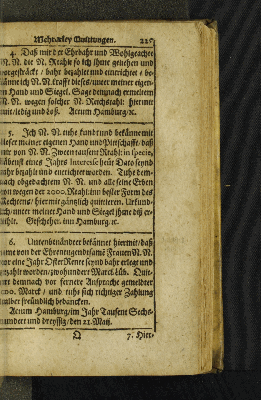 Mehrarley Quitungen. 225
4. Daß mir der Ehrbahr und Wohlgeachter
N. N. die N. Rthalr so ich ihme geliehen und
vorgesträckt / bahr bezahlet und entrichtet
känne ich N. N. krafft dieses / unter meiner eigen
Hand und Siegel. Sage demnach ermeltem
N. N. wegen solcher N. Reichsthal: hiermit
ledig und loß. Actum Hamburg / ꝛc.
5. Ich N. N. thue kund und bekänne mit
dieser meiner eigenen Hand und Pittschafft / daß
von N. N. Zwey tausent Rthal: in specie,
nebenst eines Jahrs Interesse heut Dato seynd
bezahlt und entrichtet worden. Tuhe dem-
nach obgedachtem N. N. und alle seine Erben
wegen der 2000. Rthal: in bester Form des
Rechtens / hiermit gänzlich quitieren. Urkund-
lich / unter meiner Hand und Siegel ihme diß er-
theilt. Geschehen in Hamburg / ꝛc.
6. Untenbenändter bekännet hiermit / daß
von der Ehrentugendtsame Frauen N. N.
eine Jahr Oster Rente seynd bahr erlegt und
gezahlt worden / zwohundert Marck Lüb. Quie-
demnach vor fernere Ansprache gemeldter
200. Marck / und tuhe sich richtiger Zahlung
halber freundlich bedancken.
Actum Hamburg / im Jahr Tausent Sechs-
hundert und dreyssig / den 21. Maij.
Q 7. Hier-